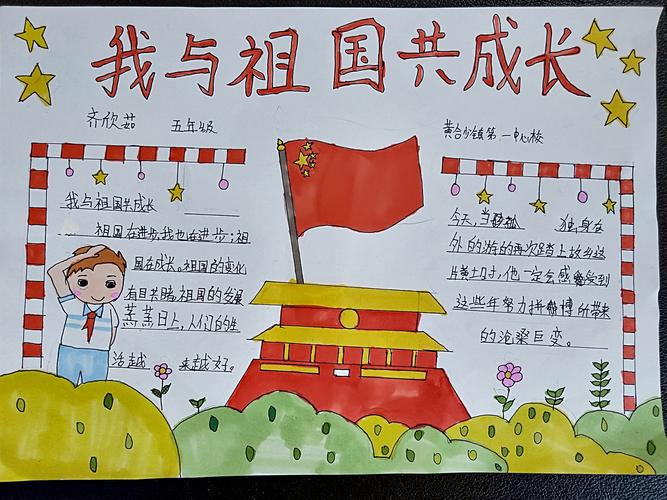 我与祖国共成长
齐欣茹 五年级
黄合少镇第一中心校
我与祖国共成长
祖国在进步,我也在进步;祖
国在成长。祖国的变化
有目共睹,祖国的发展
蒸蒸日上,人们的生
活越来越好。
今天,当 独身在
外的游的再次踏上故乡这
片黄土时,他一定会感受到
这些年努力拼搏所带来
的沧桑巨变。